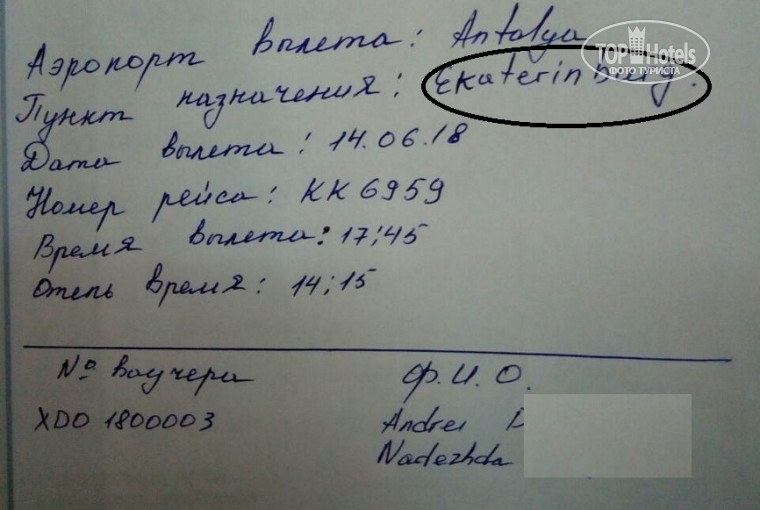 TOP Hotels
ФОТО ТУРИСТА
Аэропорт вылета: Antalya
Пункт назначения: Ekaterinburg.
Дата вылета: 14.06.18
Номер рейса: KK 6959
Время вылета: 17:45
Отель время: 14:15
№ ваучера Ф.И.О.
XDO 1800003 Andrei
Nadezhda